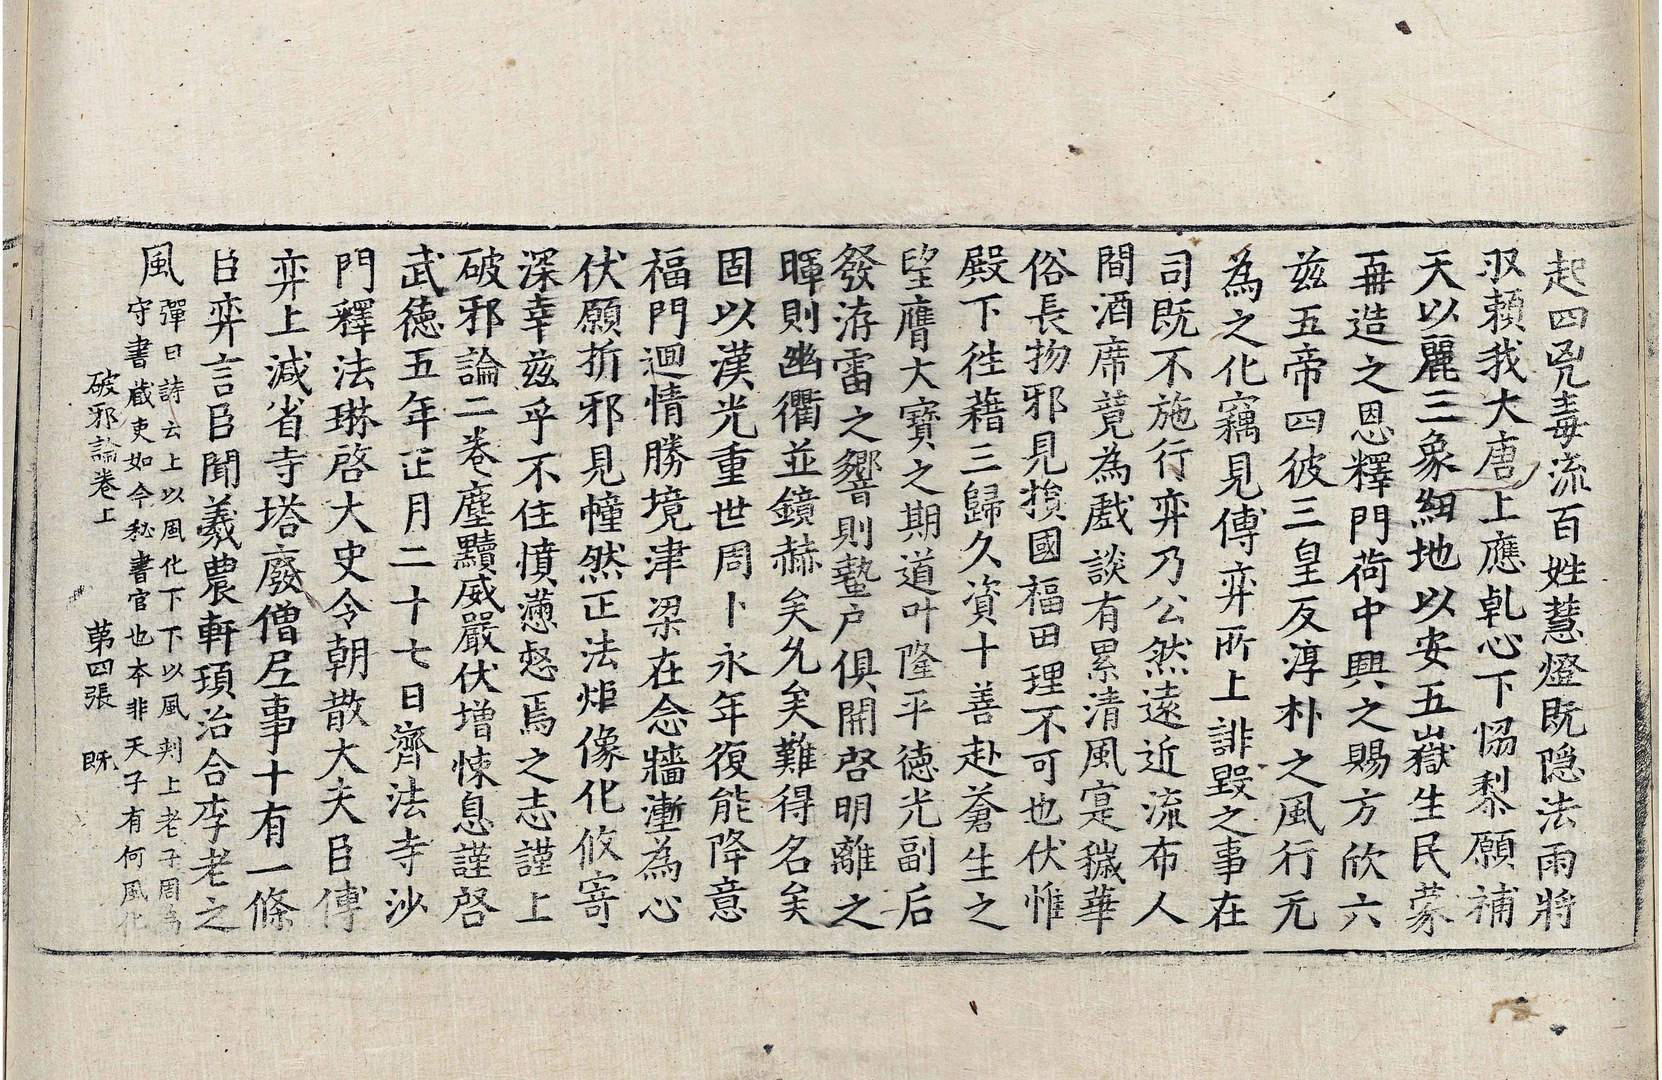 起四兇毒流百姓慧燈既隐法雨將
収賴我大唐上應乹心下恊黎願補
天以麗三象紐地以安五嶽生民蒙
再造之恩釋門荷中興之賜方欣六
茲五帝四彼三皇反淳朴之風行无
為之化竊見傅弈所上誹毀之事在
司既不施行弈乃公然遠近流布人
間酒席竟為戲談有累清風寔穢華
俗長物邪見損國福田理不可也伏惟
殿下徃藉三歸久資十善赴蒼生之
望膺大寶之期道叶隆平德光副后
發洊雷之響則蟄户俱開啓明離之
暉則幽衢並鏡赫矣允矣難得名矣
固以漢光重世周卜永年復能降意
福門迴情勝境津梁在念牆壍為心
伏願折邪見幢然正法炬像化攸寄
深幸兹乎不住憤懣愍焉之志謹上
破邪論二卷塵黷威嚴伏增悚息謹啓
武德五年正月二十七日濟法寺沙
門釋法琳啓大史令朝散大夫臣傅
弈上減省寺塔廢僧尼事十有一條
臣弈言臣聞羲農軒頊治合李老之
風 彈曰詩云上以風化下下以風刺上老子周為
守書藏吏如今秘書官也本非天子有何風化
破邪論卷上 苐四張 既